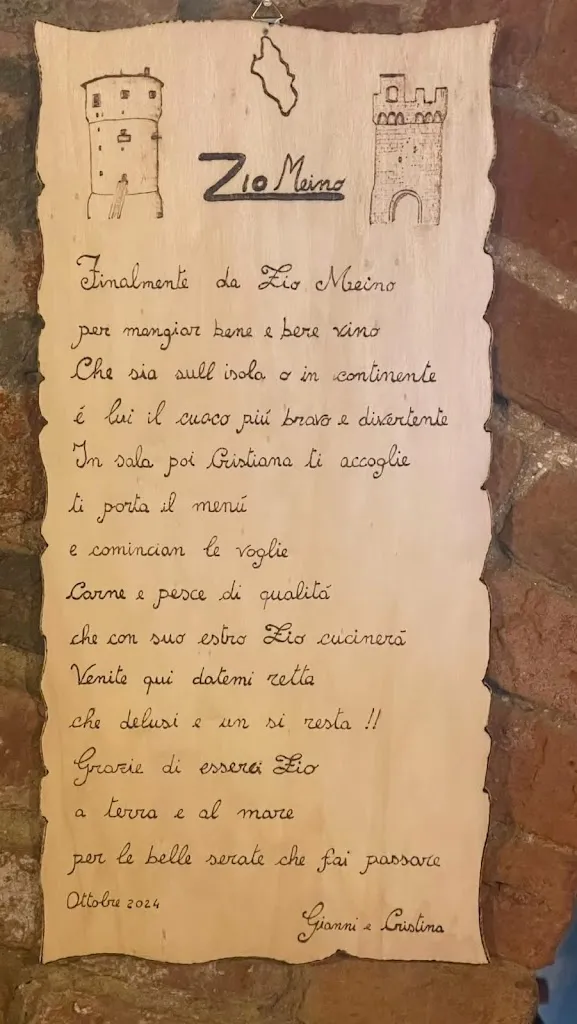 Zio Meino
Finalmente da Zio Meino
per mangiar bene e bere vino
Che sia sull isola o in continente
é lui il cuoco piú bravo e divertente
In sala poi Cristiana ti accoglie
ti porta il menú
e comincian le voglie
Carne e pesce di qualitá
che con suo estro Zio cucinerá
Venite qui datemi retta
che delusi e un si resta !!
Grazie di esserci Zio
a terra e al mare
per le belle serate che fai passare
Ottobre 2024
Gianni e Cristina